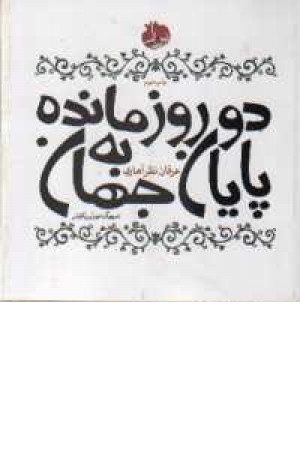 چاپ دوم
دو روز مانده
به
پایان جهان
عرفان نظرآهاری